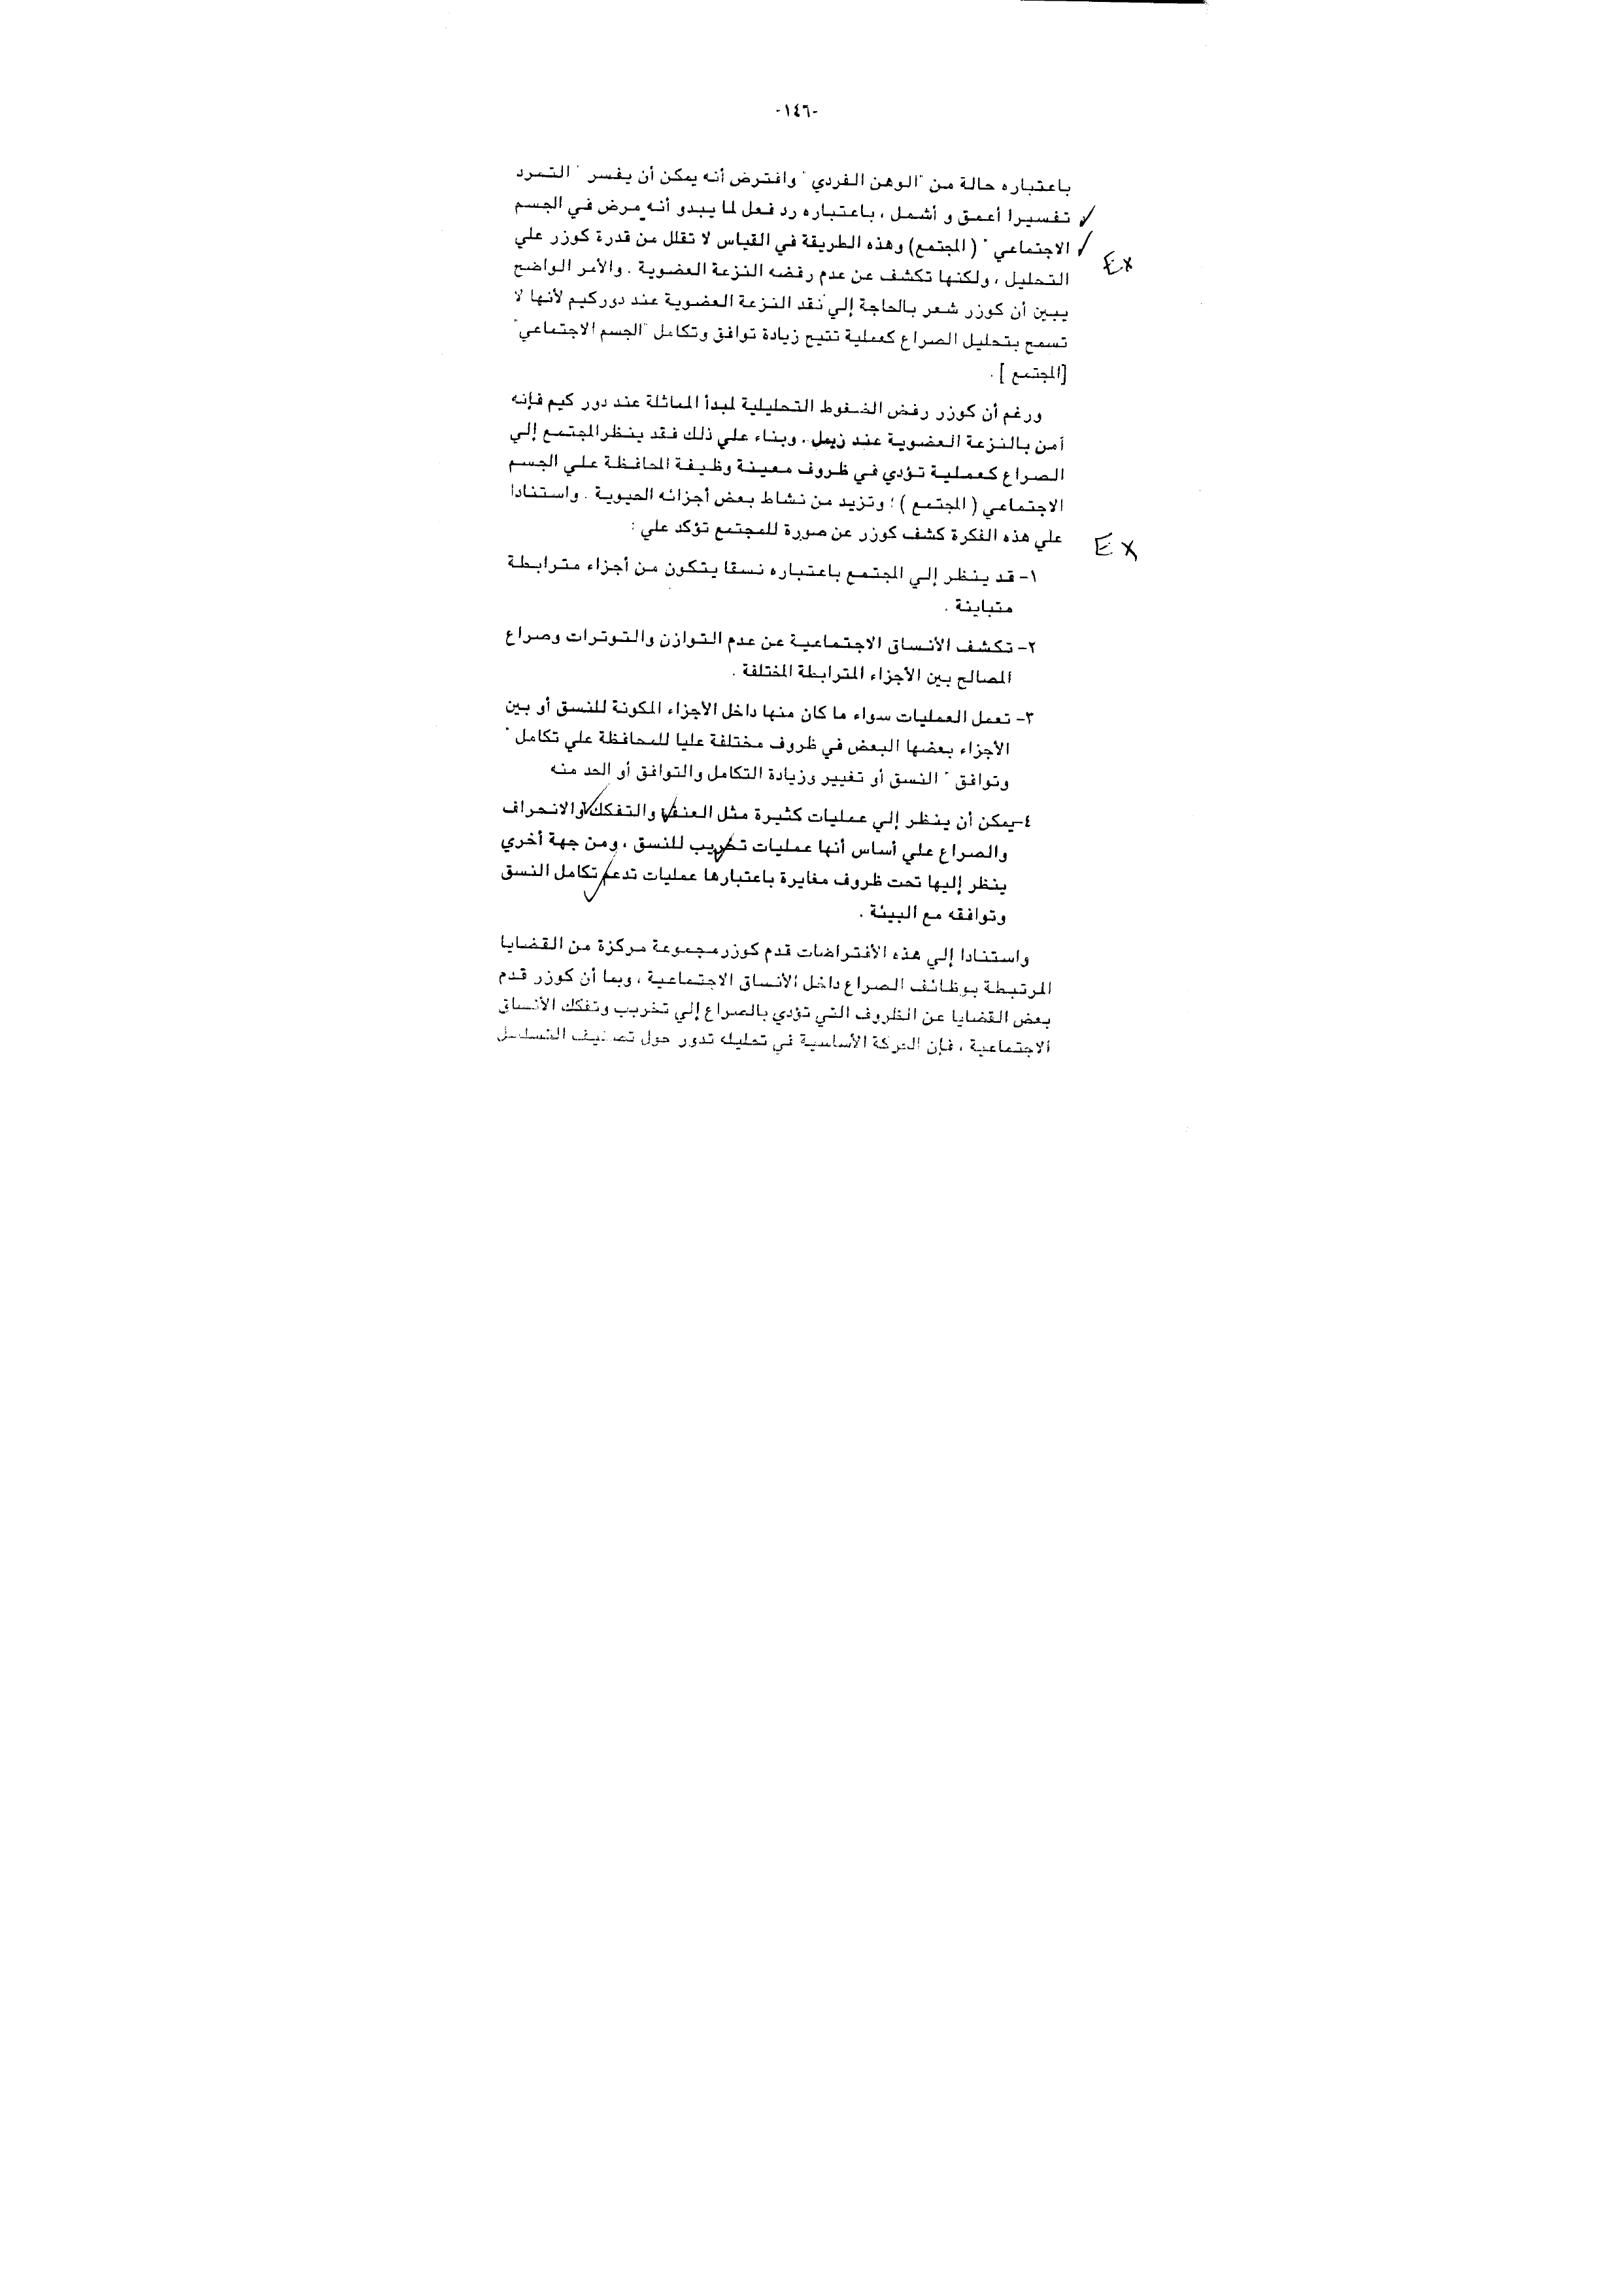 -١٤٦-
باعتباره حالة من "الوهن الفردي" وافترض أنه يمكن أن يفسر "التمرد
تفسيرا أعمق و أشمل ، باعتباره رد فعل لما يبدو أنه مرض في الجسم
الاجتماعي" (المجتمع) وهذه الطريقة في القياس لا تقلل من قدرة كوزر علي
EX
التحليل ، ولكنها تكشف عن عدم رفضه النزعة العضوية . والأمر الواضح
يبين أن كوزر شعر بالحاجة إلي نقد النزعة العضوية عند دوركيم لأنها لا
تسمح بتحليل الصراع كعملية تتيح زيادة توافق وتكامل "الجسم الاجتماعي"
[المجتمع ] .
ورغم أن كوزر رفض الضغوط التحليلية لمبدأ المماثلة عند دور كيم فإنه
آمن بالنزعة العضوية عند زيمل . وبناء علي ذلك فقد ينظر المجتمع إلي
الصراع كعملية تؤدي في ظروف معينة وظيفة المحافظة علي الجسم
الاجتماعي ( المجتمع ) ؛ وتزيد من نشاط بعض أجزائه الحيوية . واستنادا
علي هذه الفكرة كشف كوزر عن صورة للمجتمع تؤكد علي :
EX
١- قد ينظر إلي المجتمع باعتباره نسقا يتكون من أجزاء مترابطة
متباينة .
٢- تكشف الأنساق الاجتماعية عن عدم التوازن والتوترات وصراع
المصالح بين الأجزاء المترابطة المختلفة .
٣- تعمل العمليات سواء ما كان منها داخل الأجزاء المكونة للنسق أو بين
الأجزاء بعضها البعض في ظروف مختلفة عليا للمحافظة علي تكامل "
وتوافق " النسق أو تغيير وزيادة التكامل والتوافق أو الحد منه
٤-يمكن أن ينظر إلي عمليات كثيرة مثل العنف والتفكك والانحراف
والصراع علي أساس أنها عمليات تخريب للنسق ، ومن جهة أخري
ينظر إليها تحت ظروف مغايرة باعتبارها عمليات تدعم تكامل النسق
وتوافقه مع البيئة .
واستنادا إلي هذه الأفتراضات قدم كوزر مجموعة مركزة من القضايا
المرتبطة بوظائف الصراع داخل الأنساق الاجتماعية ، وبما أن كوزر قدم
بعض القضايا عن الظروف التي تؤدي بالصراع إلي تخريب وتفكك الأنساق
الاجتماعية ، فإن الحركة الأساسية في تحليله تدور حول تصنيف التسلسل